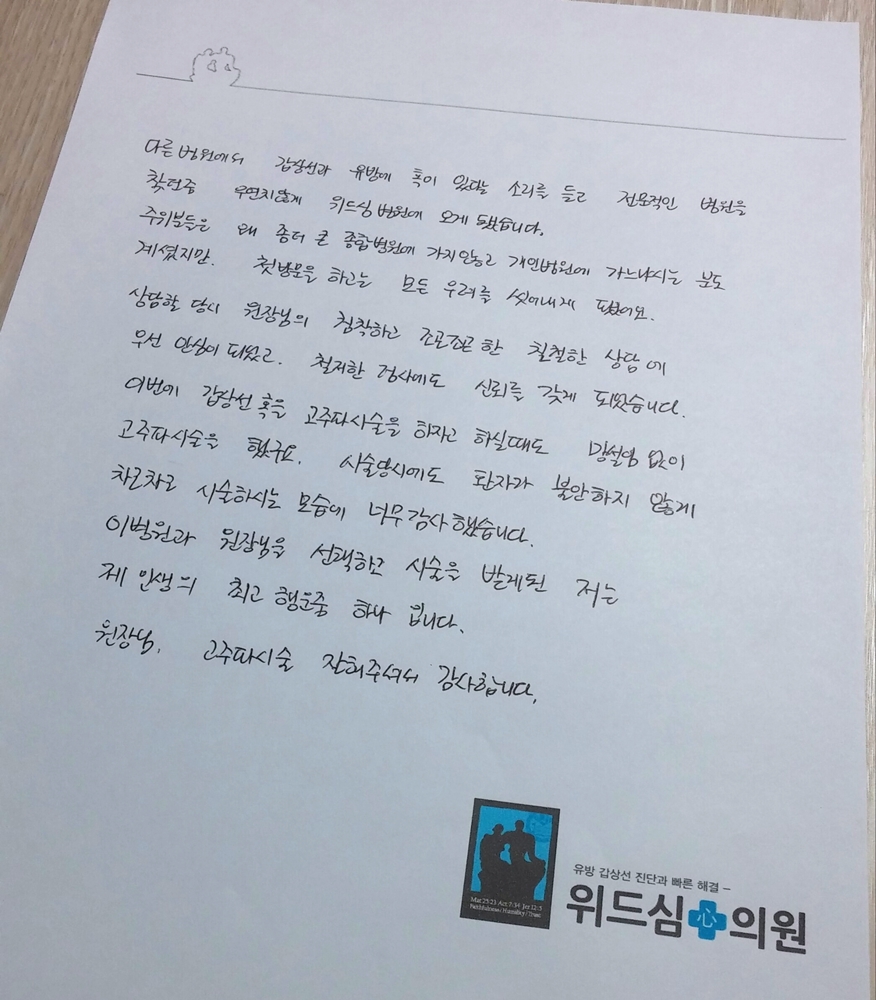 다른 병원에서 갑상선과 유방에 혹이 있다는 소리를 듣고 전문적인 병원을
찾던중 우연치않게 위드심 병원에 오게 됐습니다.
주위분들은 왜 좀더 큰 종합병원에 가지않고 개인병원에 가느냐시는 분도
계셨지만. 첫방문을 하고는 모든 우려를 씻어내게 됐어요.
상담할 당시 원장님의 침착하고 조곤조곤한 친절한 상담에
우선 안심이 되었고. 철저한 검사에도 신뢰를 갖게 되었습니다.
이번에 갑상선 혹을 고주파시술을 하자고 하실때도 망설임 없이
고주파시술을 했구요. 시술당시에도 환자가 불안하지 않게
차근차근 시술하시는 모습에 너무 감사했습니다.
이병원과 원장님을 선택하고 시술을 받게된 저는
제 인생의 최고 행운중 하나 입니다.
원장님. 고주파시술 잘해주셔서 감사합니다.
Mat 25:23 Act 7:34 Jer 12:3
Faithfulness / Humility / Trust
유방 갑상선 진단과 빠른 해결 –
위드심 心 의원